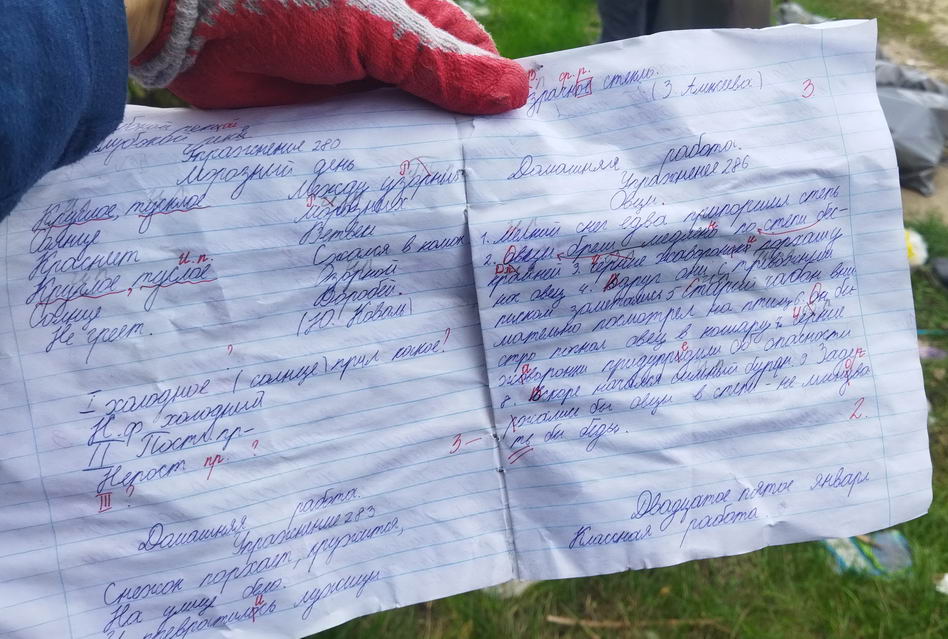 Упражнение 280
Морозный день
Круглое, тусклое
Солнце
Краснеет
и.п.
Круглое, тусклое
Солнце
Не греет.
Между узорных
Морозных
Ветвей
Сжался в комок
Зоркий
Воробей.
(Ю. Коваль)
?
I холодное (солнце) прил какое?
Н.ф. холодный
II Пост. пр-
Непост пр. ?
III ?
3-
Домашняя работа.
Упражнение 283
Снежок порхает, кружится,
На улице бело.
И превратились лужицы
ф. р.
зрачное стекло.
(З. Алексеева)
3
Домашняя работа.
Упражнение 286
Овцы.
1. Мелкий снег едва припорошил степь
2. Овцы брели медлено по степи бес-
крайней 3. Черние жаворонки порхали
ник овец 4. Вдруг они с тревожным
писком заметались 5 Старший чабан вни
мательно посмотрел на птиц 6. Он бы
стро погнал овец в кошару 7 Черние
жаворонки придупредили об опасности
8. Вскоре начался сильный буран. 9 Заде
ржались бы овцы в степи - не миновва
ть бы беды.
2.
Двадцатое пятое январь
Классная работа.